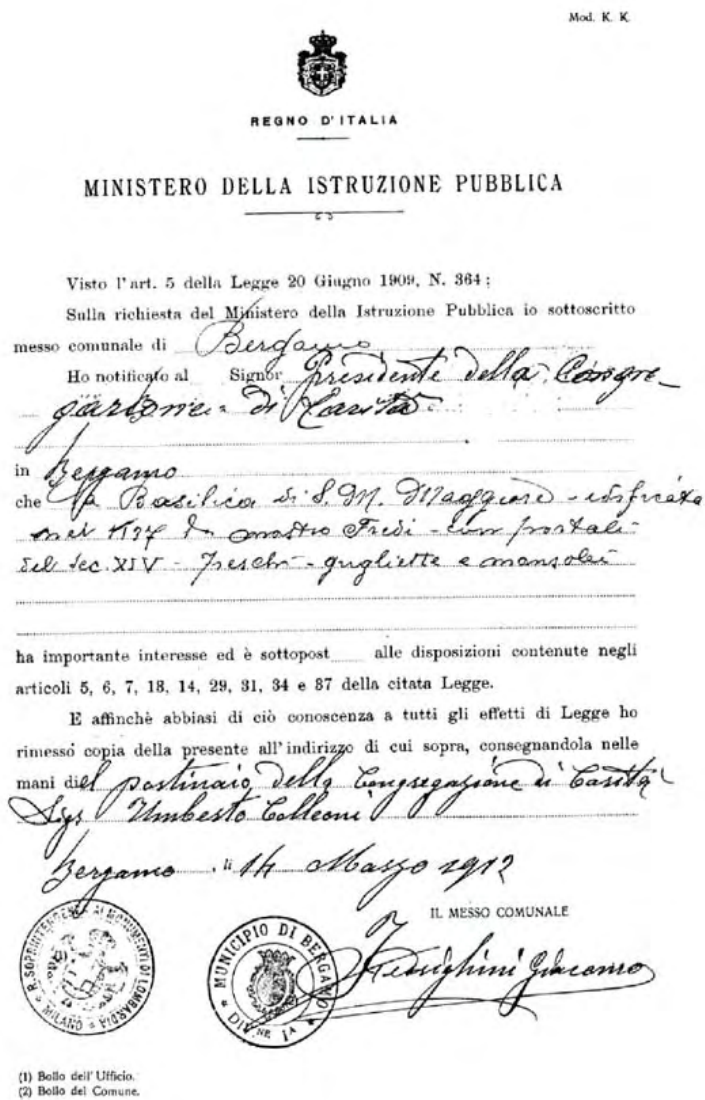 Mod. K. K.
REGNO D'ITALIA
MINISTERO DELLA ISTRUZIONE PUBBLICA
Visto l'art. 5 della Legge 20 Giugno 1909, N. 364;
Sulla richiesta del Ministero della Istruzione Pubblica io sottoscritto
messo comunale di Bergamo
Ho notificato al Signor presidente della Congre-
gazione di Carità
in Bergamo
che la Basilica di S. M. Maggiore - edificata
nel 1137 da mastro Fredi - con portali
del sec. XIV - freschi - gugliette e mausolei
ha importante interesse ed è sottopost alle disposizioni contenute negli
articoli 5, 6, 7, 13, 14, 29, 31, 34 e 37 della citata Legge.
E affinchè abbiasi di ciò conoscenza a tutti gli effetti di Legge ho
rimesso copia della presente all'indirizzo di cui sopra, consegnandola nelle
mani del portinaio della Congregazione di Carità
Sigr Umberto Colleoni
Bergamo, li 14 Marzo 1912
IL MESSO COMUNALE
Giacomo
R. SOPRINTENDENZA AI MONUMENTI DI LOMBARDIA
MILANO
MUNICIPIO DI BERGAMO
DIV.NE 1A
(1) Bollo dell'Ufficio.
(2) Bollo del Comune.